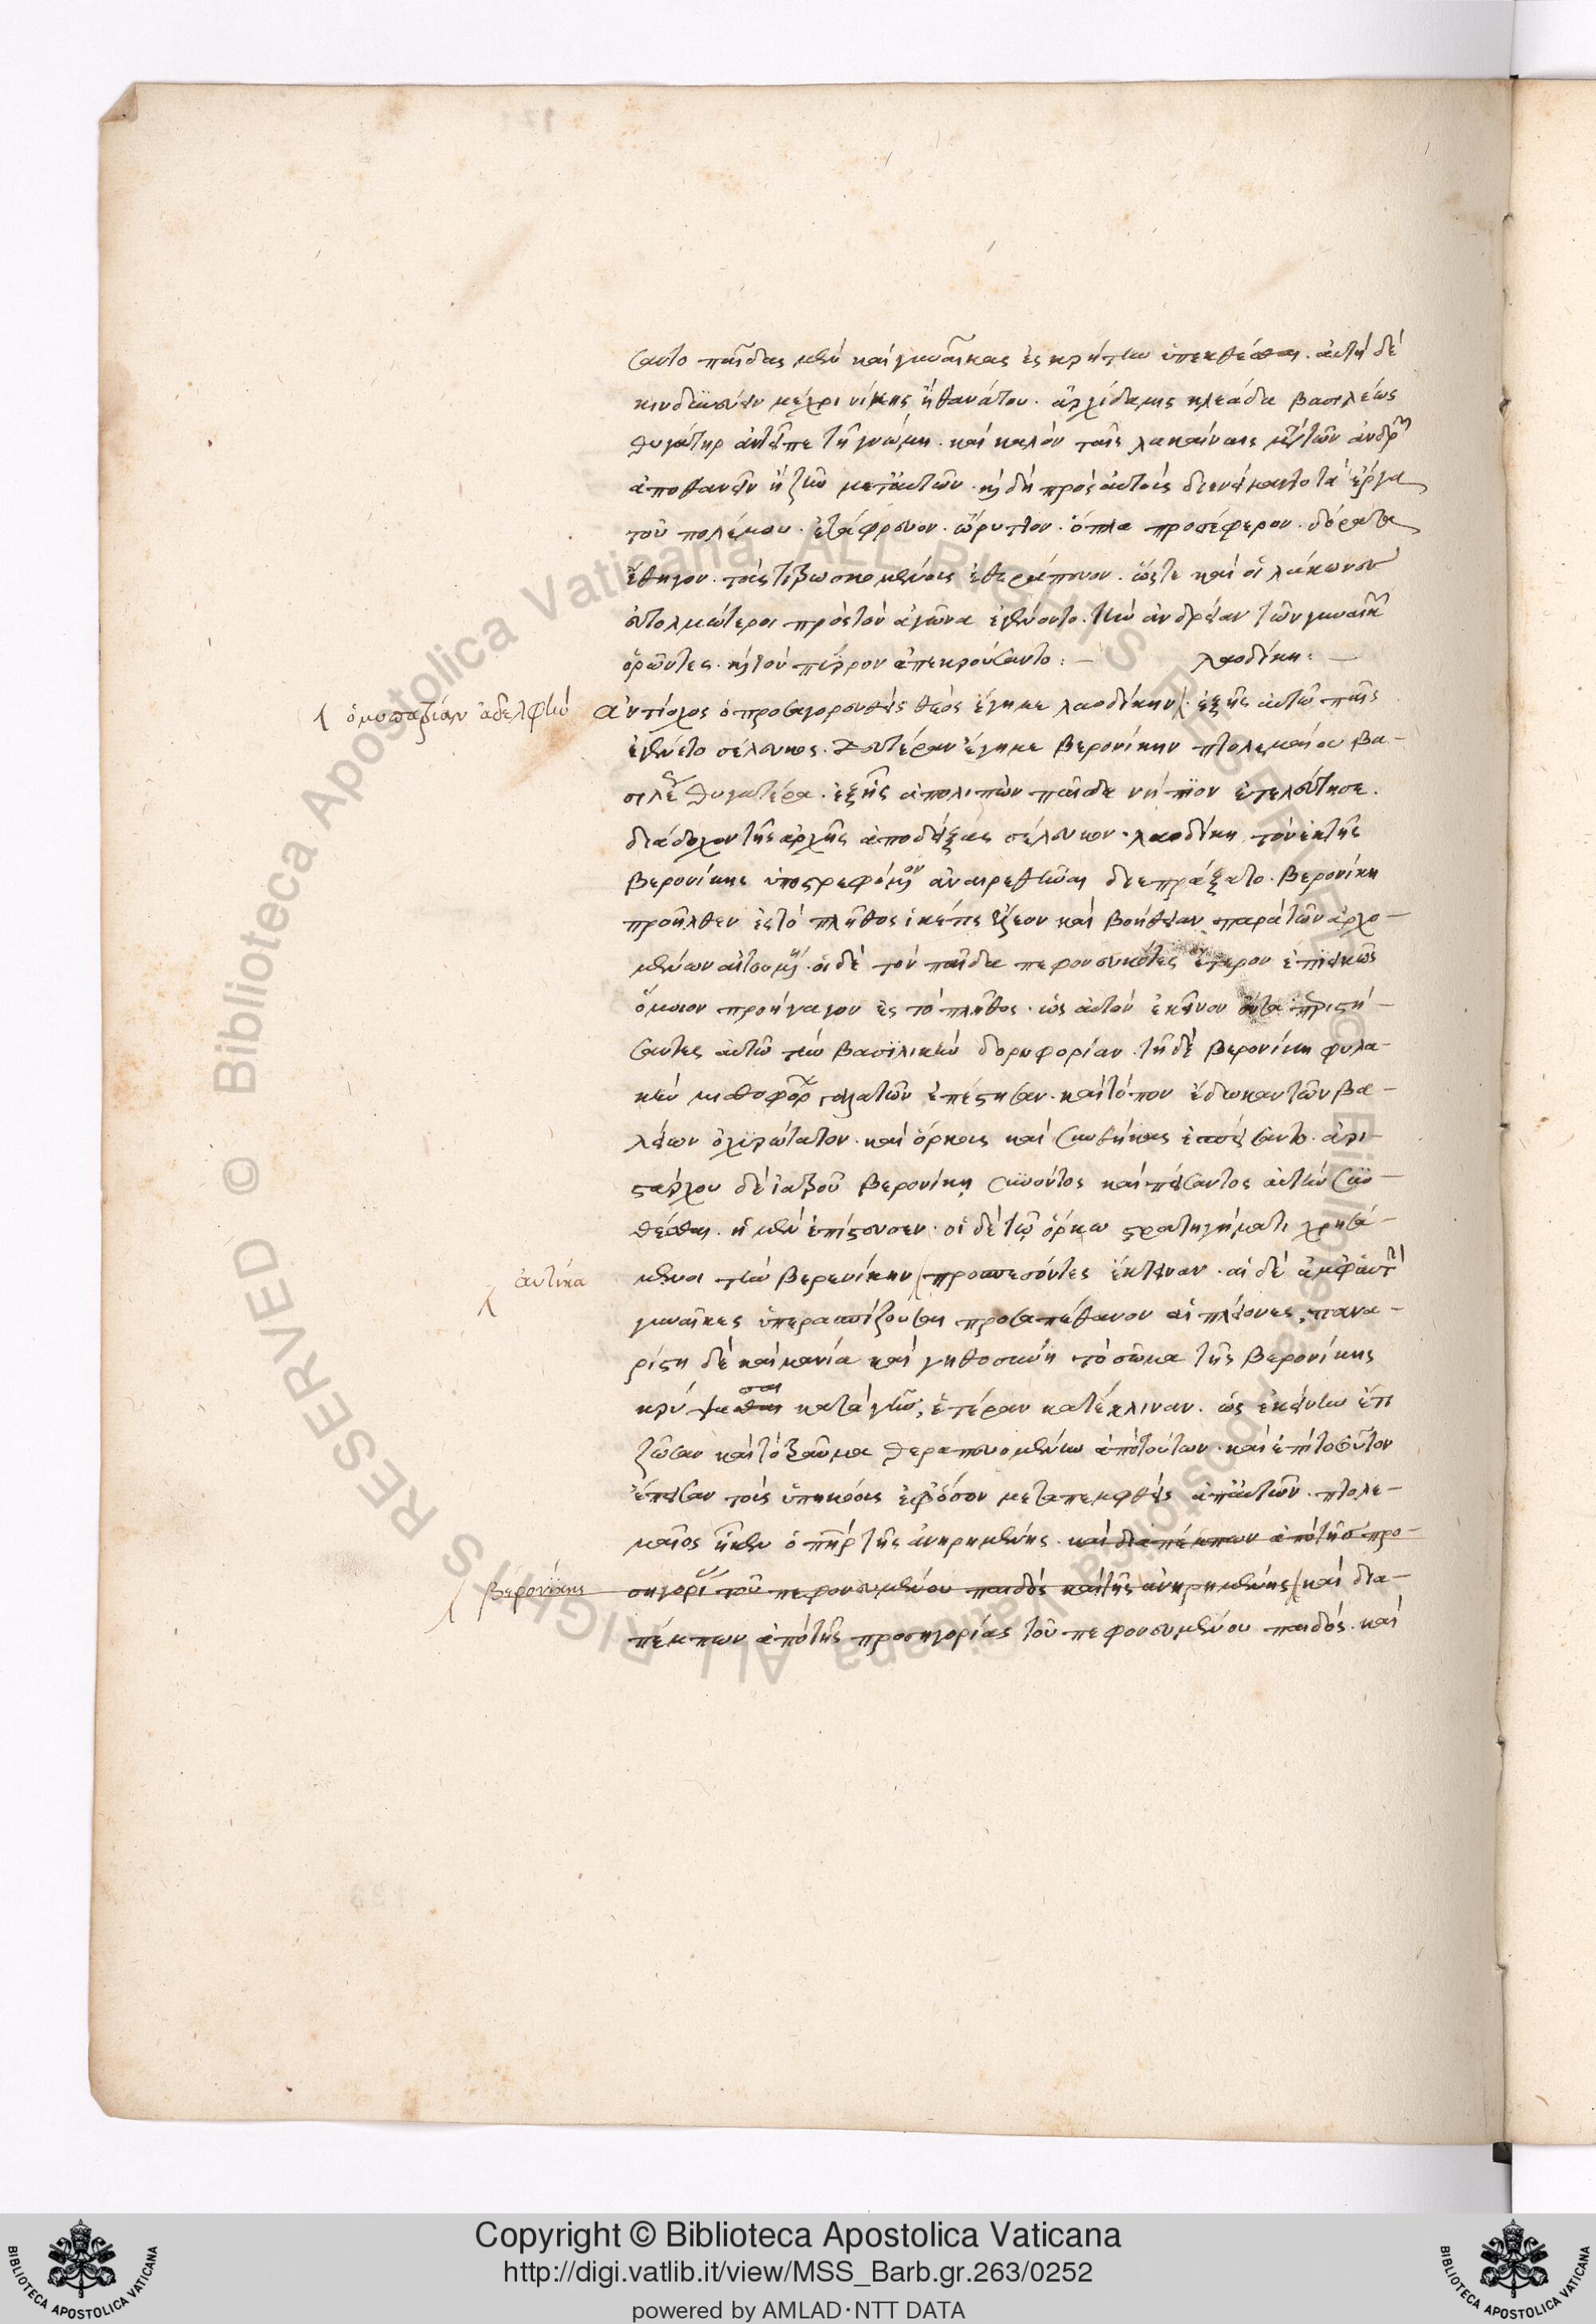 σαντο παῖδας μὲν καὶ γυναῖκας ἐς κρήτην ὑπεκθέσθαι. αὐτοὶ δὲ
κινδυνεύειν μέχρι νίκης ἢ θανάτου. ἀρχίδαμις κλεάδα βασιλέως
θυγάτηρ ἀντεῖπε τῇ γνώμῃ. καὶ καλὸν ταῖς λακαίναις μετὰ τῶν ἀνδρῶν
ἀποθανεῖν ἢ ζῆν μετ' αὐτῶν. καὶ δὴ πρὸς αὐτοὺς διενείμαντο τὰ ἔργα
τοῦ πολέμου. ἐτάφρευον. ὤρυττον. ὅπλα προσέφερον. δόρατα
ἔθηγον. τοὺς τιτρωσκομένους ἐθεράπευον. ὥστε καὶ οἱ λάκωνες
εὐτολμώτεροι πρὸς τὸν ἀγῶνα ἐγένοντο. τὴν ἀνδρείαν τῶν γυναικῶν
ὁρῶντες. καὶ τὸν πύρρον ἀπεκρούσαντο: — λαοδίκη: —
ὁμοπατρίαν ἀδελφὴν
ἀντίοχος ὁ προσαγορευθεὶς θεὸς ἔγημε λαοδίκην. ἐξ ἧς αὐτῷ παῖς
ἐγένετο σέλευκος. δευτέραν ἔγημε βερονίκην πτολεμαίου βα-
σιλέως θυγατέρα. ἐξ ἧς ἀπολιπὼν παῖδα νήπιον ἐτελεύτησε.
διάδοχον τῆς ἀρχῆς ἀποδείξας σέλευκον. λαοδίκη τὸν ἐκ τῆς
βερονίκης ὑποτρεφόμενον ἀναιρεθῆναι διεπράξατο. βερονίκη
προῆλθεν ἐς τὸ πλῆθος ἱκέτις ἔλεον καὶ βοήθειαν παρὰ τῶν ἀρχο-
μένων αἰτουμένη. οἱ δὲ τὸν παῖδα πεφονευκότες ἕτερον ἐπιεικῶς
ὅμοιον προήγαγον ἐς τὸ πλῆθος. ὡς αὐτὸν ἐκεῖνον ὄντα περιστή-
σαντες αὐτῷ τὴν βασιλικὴν δορυφορίαν. τῇ δὲ βερονίκῃ φυλα-
κὴν μισθοφόρων γαλατῶν ἐπέστησαν. καὶ τόπον ἔδωκαν τῶν βα-
λείων ὀχυρώτατον. καὶ ὅρκους καὶ συνθήκας ἐσπείσαντο. ἀρι-
στάρχου δὲ ἰατροῦ βερονίκῃ συνόντος καὶ πείσαντος αὐτὴν συν-
θέσθαι. ἡ μὲν ἐπίστευσεν. οἱ δὲ τῷ ὅρκῳ στρατηγήματι χρησά-
αὐτίκα
μενοι τὴν βερενίκην προσπεσόντες ἔκτειναν. αἱ δὲ ἀμφ' αὐτὴν
γυναῖκες ὑπερασπίζουσαι προσαπέθανον αἱ πλείονες, πανα-
ρίστη δὲ καὶ μανία καὶ γηθοσύνη τὸ σῶμα τῆς βερονίκης
κρύψασαι κατὰ γῆν, ἑτέραν κατέκλιναν. ὡς ἐκείνην ἔτι
ζῶσαν καὶ τὸ τραῦμα θεραπευομένην ἀπὸ τούτων. καὶ ἐπὶ τοσοῦτον
ἔπεισαν τοὺς ὑπηκόους ἐφ' ὅσον μεταπεμφθεὶς ἀπ' αὐτῶν. πτολε-
μαῖος ἧκεν ὁ πατὴρ τῆς ἀνῃρημένης. καὶ διαπέμπων ἀπὸ τῆς προ-
βερονίκης
σηγορίας τοῦ πεφονευμένου παιδὸς καὶ τῆς ἀνῃρημένης καὶ δια-
πέμπων ἀπὸ τῆς προσηγορίας τοῦ πεφονευμένου παιδός. καὶ
Copyright © Biblioteca Apostolica Vaticana
http://digi.vatlib.it/view/MSS_Barb.gr.263/0252
powered by AMLAD·NTT DATA